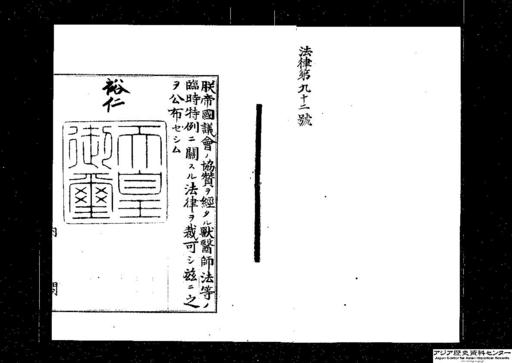 法律第九十二號
朕帝國議會ノ協贊ヲ經タル獸醫師法等ノ
臨時特例ニ關スル法律ヲ裁可シ茲ニ之
ヲ公布セシム
裕仁
天皇御璽
内閣
アジア歴史資料センター
Japan Center for Asian Historical Records